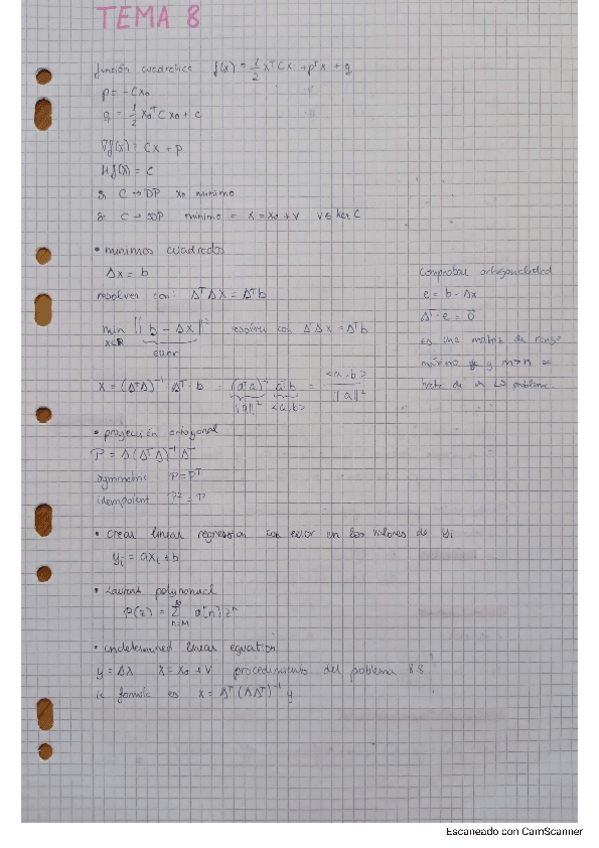 TEMA 8
función cuadratica f(x) = 1/2 xᵀCx + pᵀx + q
p = -Cx₀
q = 1/2 x₀ᵀCx₀ + c
∇f(x) = Cx + p
Hf(x) = C
Si C → DP x₀ minimo
Si C → SDP minimo = x = x₀ + v v ∈ ker C
• minimos cuadrados
Ax = b
resolver con: AᵀAx = Aᵀb
min ‖b - Ax‖² resolver con AᵀAx = Aᵀb
x∈ℝ
error
x = (AᵀA)⁻¹ Aᵀ b = (aᵀa)⁻¹ aᵀb = <a,b> / ‖a‖²
‖a‖² <a,b>
Comprobar ortogonalidad
e = b - Ax
Aᵀ·e = 0⃗
es una matriz de rango
máximo y m>n se
trata de un LS problem.
• projección ortogonal
P = A(AᵀA)⁻¹Aᵀ
symmetric P = Pᵀ
idempotent P² = P
• crear linear regression con error en los valores de yi
yi = axi + b
• Laurent polynomial
P(z) = Σ a[n] zⁿ
n=M
• undetermined linear equation
y = Ax x = x₀ + v procedimiento del problema 8.8
la formula es x = Aᵀ(AAᵀ)⁻¹ y
Escaneado con CamScanner